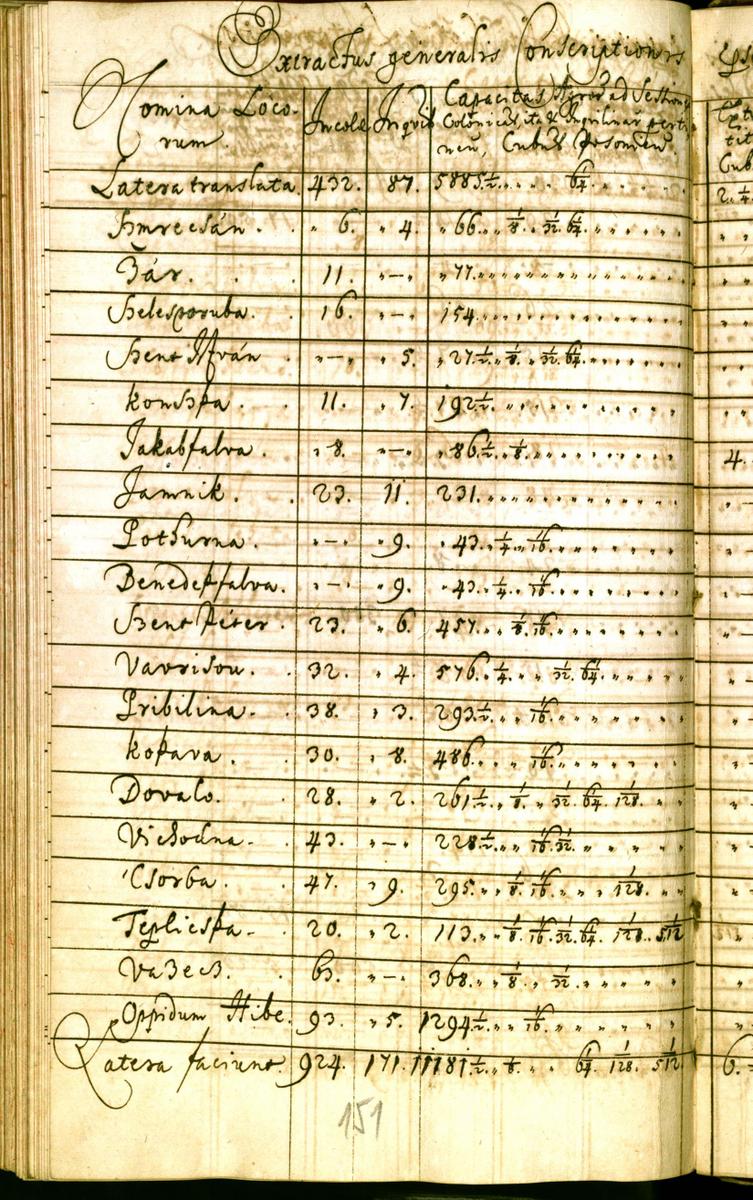 Extractus generalis Conscriptionis
Nomina Loco-
rum.
Incolæ
Inquil
Capacitas Agror ad Sessiones
Colonicas, ita & Inquilinar perti
nen, Cubul Posonien.
Latera translata. 432. 87. 5885 1/2 . . . . 1/64 . . . .
Szmrecsán. . „ 6. „ 4. „ 66. „ 1/8 „ 1/32 1/64 „ „ „ „
Žár. . . 11. „ — „ „ 77. „ „ „ „
Szelesporuba. 16. „ — „ 154. „ „ „ „
Szent István . „ — „ „ 5. „ 27 1/2 „ 1/8 „ 1/32 1/64 „ „ „ „
Konszka. . 11. „ 7. 192 1/2 „ „ „ „
Jakabfalva. . „ 8. „ — „ „ 86 1/2 „ 1/8 „ „ „ „ 4.
Jamnik. . 23. 11. 231. „ „ „ „
Pothurna. . „ — „ „ 9. „ 43. 1/4 „ 1/16 „ „ „ „
Benedekfalva. . „ — „ „ 9. „ 43. 1/4 „ 1/16 „ „ „ „
Szent Péter. . 23. „ 6. 457. „ „ 1/8 1/16 „ „ „ „
Vavrisou. . 32. „ 4. 576. 1/4 „ „ 1/32 1/64 „ „ „ „
Pribilina. . 38. „ 3. 293 1/2 „ „ 1/16 „ „ „ „
Kokava. . 30. „ 8. 486. „ „ „ 1/16 „ „ „ „
Dovalo. . 28. „ 2. 261 1/2 „ 1/8 „ 1/32 1/64 1/128 „ „
Vichodna. . 43. „ — „ 228 1/2 „ „ 1/16 1/32 „ „ „ „
Csorba. . 47. „ 9. 295. „ „ 1/8 1/16 „ „ „ 1/128 „ „
Tepliczka. . 20. „ 2. 113. „ „ 1/8 1/16 1/32 1/64 1/128 1/512
Vazecz. . 63. „ — „ 368. „ „ 1/8 „ 1/32 „ „ „ „
Oppidum Hibe. 93. „ 5. 1294 1/2 „ „ 1/16 „ „ „ „
Latera faciunt. 924. 171. 11181 1/2 „ 1/8 „ „ 1/64 1/128 1/512 6.
151